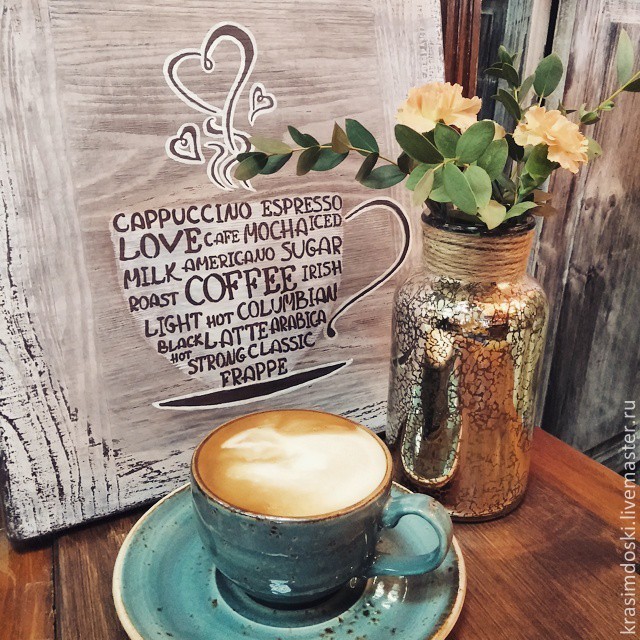 CAPPUCCINO ESPRESSO
LOVE CAFE MOCHA ICED
MILK AMERICANO SUGAR
ROAST COFFEE IRISH
LIGHT HOT COLUMBIAN
BLACK LATTE ARABICA
HOT STRONG CLASSIC
FRAPPE
krasimdoski.livemaster.ru